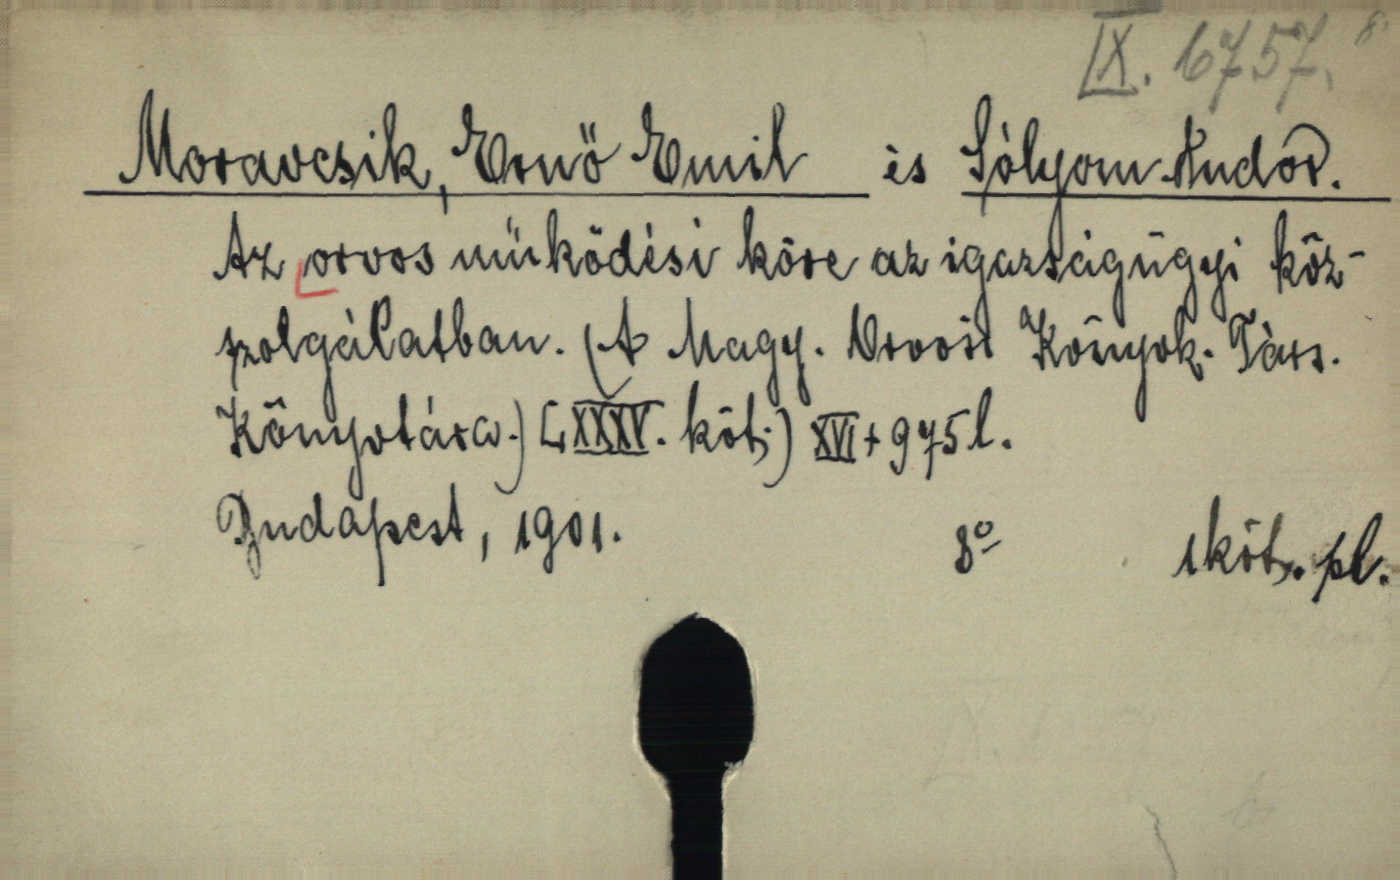 IX. 6757. 8
Moravcsik, Ernő Emil és Sólyom Andor.
Az orvos működési köre az igazságügyi köz-
szolgálatban. (A Magy. Orvosi Könyvk. Társ.
Könyvtára.) (XXXXV. köt.) XVI + 975 l.
Budapest, 1901. 8° 1 köt. pl.